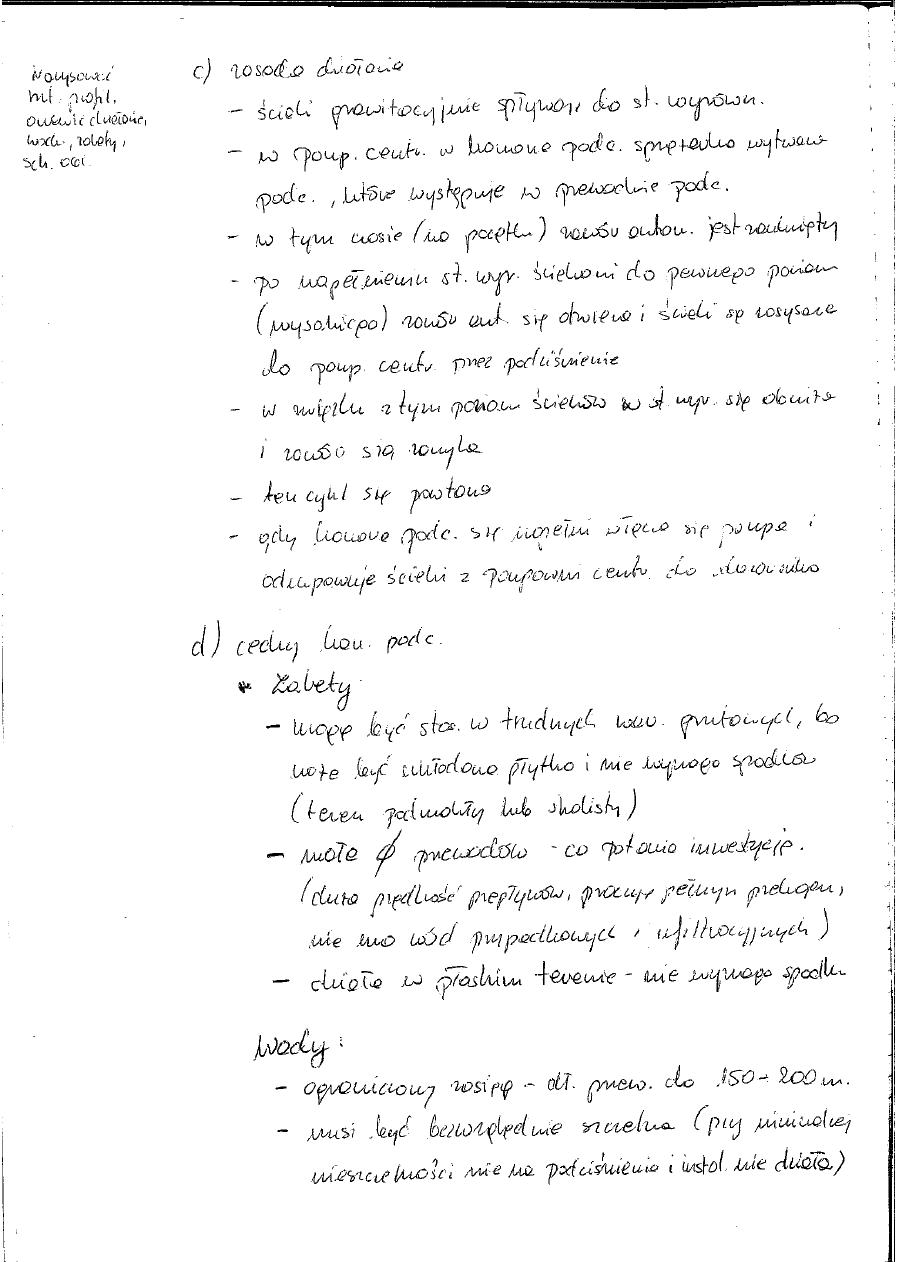 Narysować
int. profil,
omówić działanie,
wady, zalety,
sch. obl.
c) zasada działania
- ścieki grawitacyjnie spływają do st. wyrówn.
- w pomp. centr. w komorze podc. sprężarka wytwarza
podc., które występuje w przewodzie podc.
- w tym czasie (na początku) zawór autom. jest zamknięty
- po napełnieniu st. wyr. ściekami do pewnego poziomu
(wysokiego) zawór aut. się otwiera i ścieki są zasysane
do pomp. centr. przez podciśnienie
- w związku z tym poziom ścieków w st. wyr. się obniża
i zawór się zamyka
- ten cykl się powtarza
- gdy komora podc. się napełni włącza się pompa i
odpompowuje ścieki z pompowni centr. do
d) cechy kan. podc.
* Zalety
- mogą być stos. w trudnych war. gruntowych, bo
może być układana płytko i nie wymaga spadków
(teren podmokły lub skalisty)
- małe ϕ przewodów - co potania inwestycję.
(duża prędkość przepływów, pracują pełnym przekrojem,
nie ma wód przypadkowych i infiltracyjnych)
- działa w płaskim terenie - nie wymaga spadku
Wady:
- ograniczony zasięg - dł. przew. do 150-200 m.
- musi być bezwzględnie szczelna (przy minimalnej
nieszczelności nie ma podciśnienia i instal. nie działa)